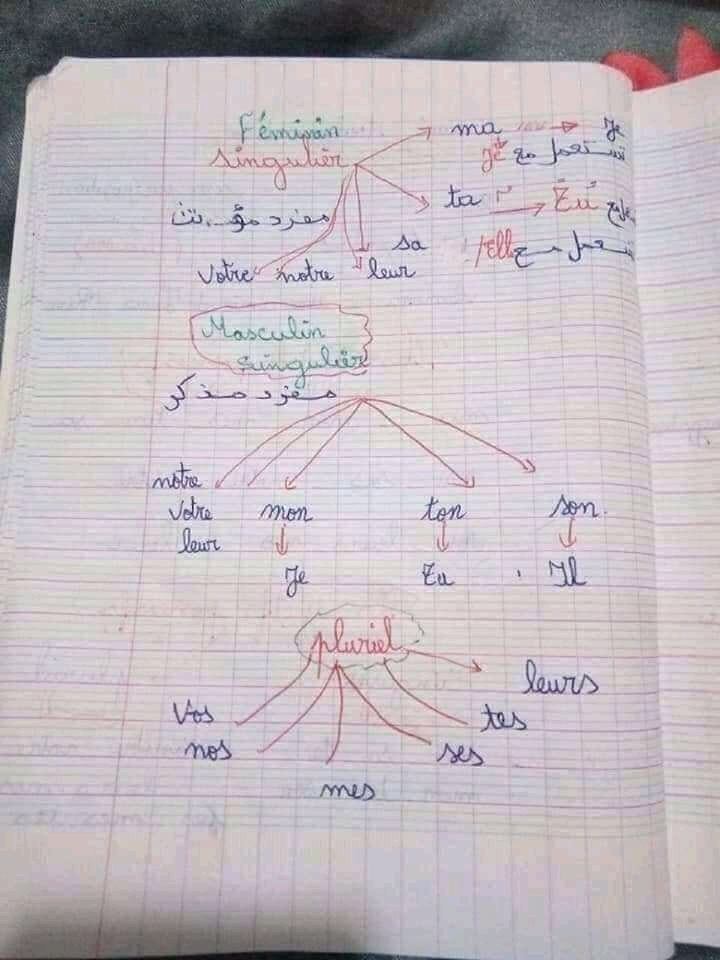 Féminin
singulier
ma → Je
تستعمل مع Je
مفرد مؤنث
ta → Tu
sa
تستعمل مع Elle/
votre notre leur
Masculin
singulier
مفرد مذكر
notre
votre mon ton son
leur
Je Tu Il
pluriel
leurs
Vos tes
nos ses
mes